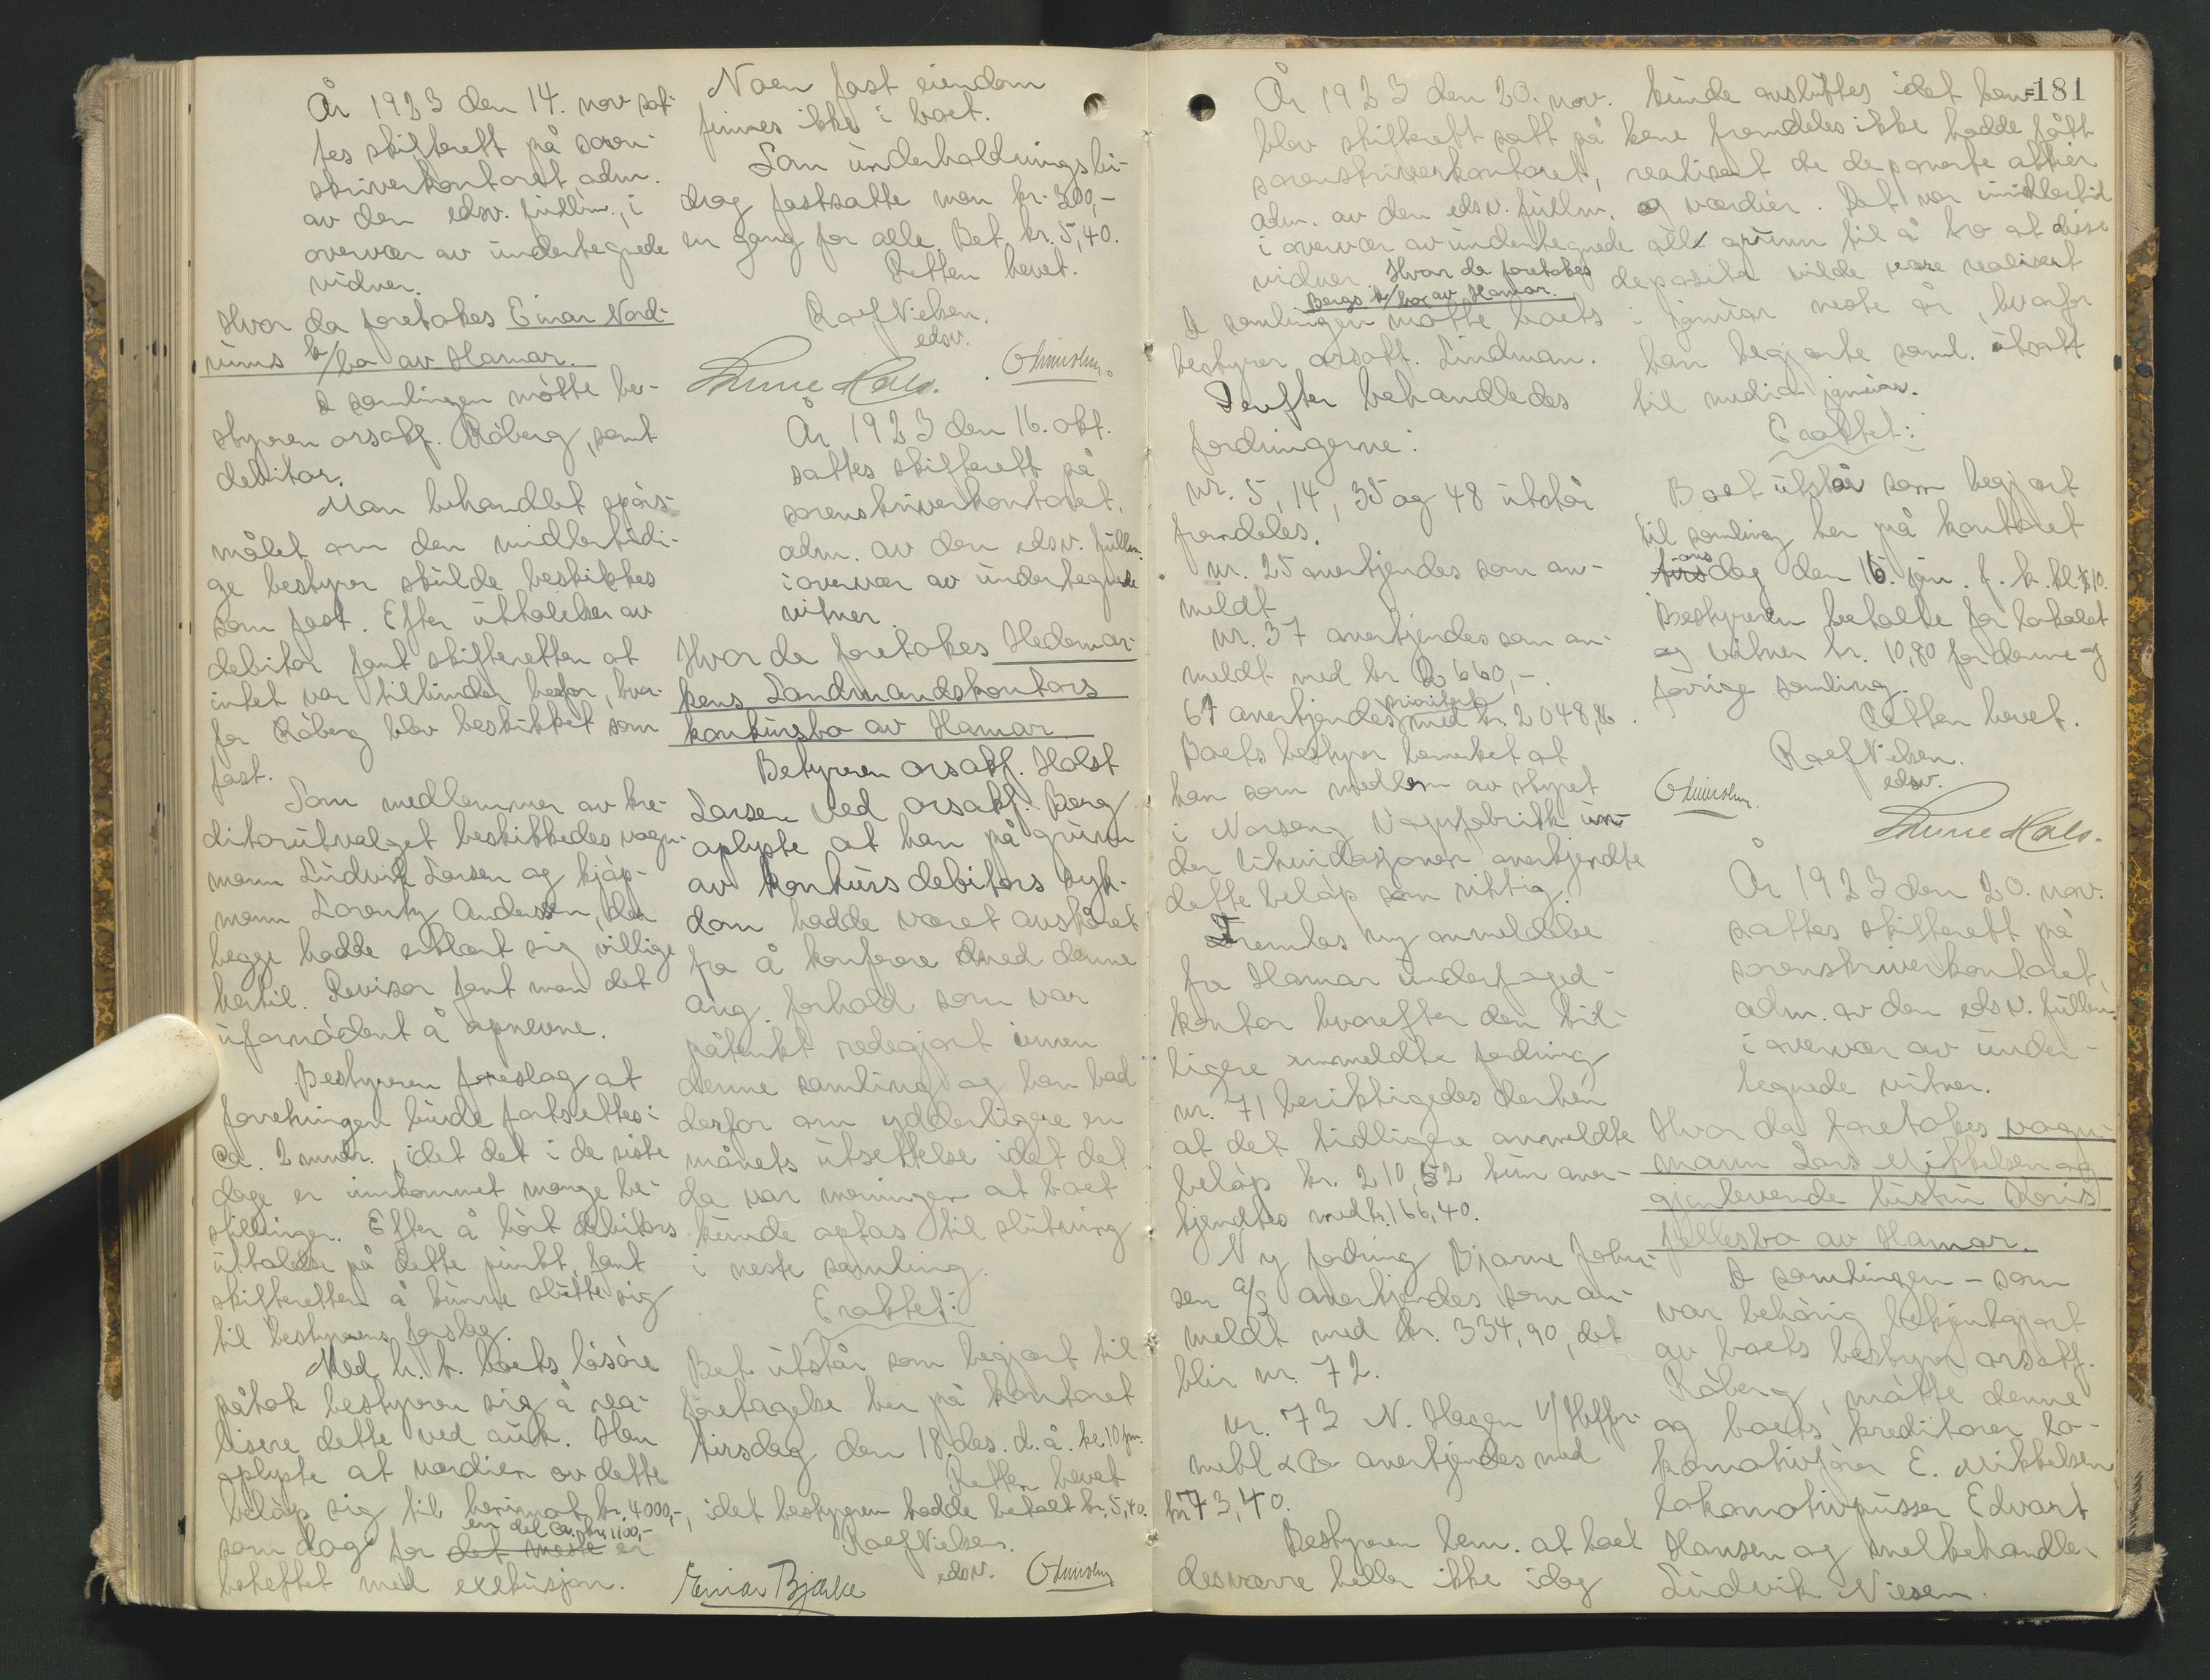 År 1923 den 14. nov. sat-
tes skifterett på soren-
skriverkontoret, adm.
av den edsv. fullm., i
overvær av undertegnede
vidner.
Hvor da foretokes Einar Nord-
ums k/bo av Hamar.
I samlingen møtte be-
styreren orsakf. Råberg, samt
debitor.
Man behandlet spørs-
målet om den midlertidi-
ge bestyrer skulde beskikkes
som fast. Efter uttalelser av
debitor fant skifteretten at
intet var tilhinder herfor, hvor-
for Råberg blev beskikket som
fast.
Som medlemmer av kre-
ditorutvalget beskikkedes vogn-
mann Ludvik Larsen og kjøp-
mann Lorentz Andersen, der
begge hadde erklært sig villige
hertil. Revisor fant man det
ufornødent å opnevne.
Bestyreren foreslog at
forretningen burde fortsettes i
ca. 2 mndr., idet det i de siste
dage er innkommet mange be-
stillinger. Efter å hørt debitors
uttalelse på dette punkt, fant
skifteretten å kunne slutte sig
til bestyrerens forslag.
Med h. t. boets løsøre
påtok bestyreren sig å rea-
lisere dette ved auk. Han
oplyste at verdien av dette
beløp sig til henimot kr. 4000,-,
en del ca. kr. 1100,-
som dog for det meste er
beheftet med exekusjon.
Noen fast eiendom
finnes ikke i boet.
Som underholdningsbi-
drag fastsatte man kr. 300,-
en gang for alle. Bet. kr. 5,40.
Retten hevet.
Roef Nielsen.
edsv.
O Lunholm.
År 1923 den 16. okt.
sattes skifterett på
sorenskriverkontoret,
adm. av den edsv. fullm.
i overvær av undertegnede
vitner.
Hvor da foretokes Hedemar-
kens Landmandskontors
konkursbo av Hamar.
Betyreren orsakf. Holst
Larsen ved orsakf. Berg
oplyste at han på grunn
av konkursdebitors syk-
dom hadde været avskåret
fra å konferere med denne
ang. forhold som var
påtenkt redegjort innen
denne samling og han bad
derfor om ydderligere en
måneds utsettelse idet det
da var meningen at boet
kunde optas til slutning
i neste samling.
Eraktet:
Bet utstår som begjært til
foretagelse her på kontoret
tirsdag den 18. des. d. å. kl. 10 fm.
Retten hevet
, idet bestyreren hadde betalt kr. 5,40.
Roef Nielsen.
edsv.
Einar Bjerke
O Lunholm
181
År 1923 den 20. nov.
blev skifterett satt på
sorenskriverkontoret,
adm. av den edsv. fullm.
i overvær av undertegnede
vidner. Hvor da foretokes
Bergs k/bo av Hamar.
I samlingen møtte boets
bestyrer orsakf. Lindman.
Derefter behandledes
fordringerne:
Nr. 5, 14, 35 og 48 utstår
fremdeles.
Nr. 25 anerkjendes som an-
meldt
Nr. 37 anerkjendes som an-
meldt med kr. 2660,-.
prioritert
67 anerkjendes med kr. 2048,86.
Boets bestyrer bemerket at
han som medlem av styret
i Norseng Vognfabrikk un-
der likvidasjonen anerkjendte
dette beløp som riktig.
Fremlas ny anmeldelse
fra Hamar underfoged-
kontor hvorefter den tid-
ligere anmeldte fordring
nr. 71 beriktigedes derhen
at det tidligere anmeldte
beløp kr. 210,52 kun aner-
kjendtes med kr. 166,40.
Ny fordring Bjarne Johan-
sen a/s anerkjendes som an-
meldt med kr. 334,90, det
blir nr. 72.
Nr. 73 N. Hagen v/
anerkjendes med
kr. 73,40.
Bestyreren bem. at boet
desværre heller ikke idag
kunde avsluttes idet ban-
kene fremdeles ikke hadde fått
realisert de deponerte aktier
og værdier. Det var imidlertid
all grunn til å tro at disse
deposita vilde være realisert
i januar neste år, hvorfor
han begjærte saml. utsatt
til medio januar.
Eraktet:
Boet utstår som begjært
til samling her på kontoret
ons
tirsdag den 16. jan. f. k. kl. 10.
Bestyreren betalte for lokalet
og vitner kr. 10,80 for denne og
forrige samling.
Retten hevet.
Roef Nielsen.
edsv.
O Lunholm.
År 1923 den 20. nov.
sattes skifterett på
sorenskriverkontoret,
adm. av den edsv. fullm.
i overvær av under-
tegnede vitner.
Hvor da foretokes vogn-
mann Lars Mikkelsen og
gjenlevende hustru Karis
fellesbo av Hamar.
I samlingen - som
var behørig bekjentgjort
av boets bestyrer orsakf.
Råberg, møtte denne
og boets kreditorer lo-
komotivfører E. Mikkelsen
lokomotivpusser Edvart
Hansen og melkehandler
Ludvik Niesen.